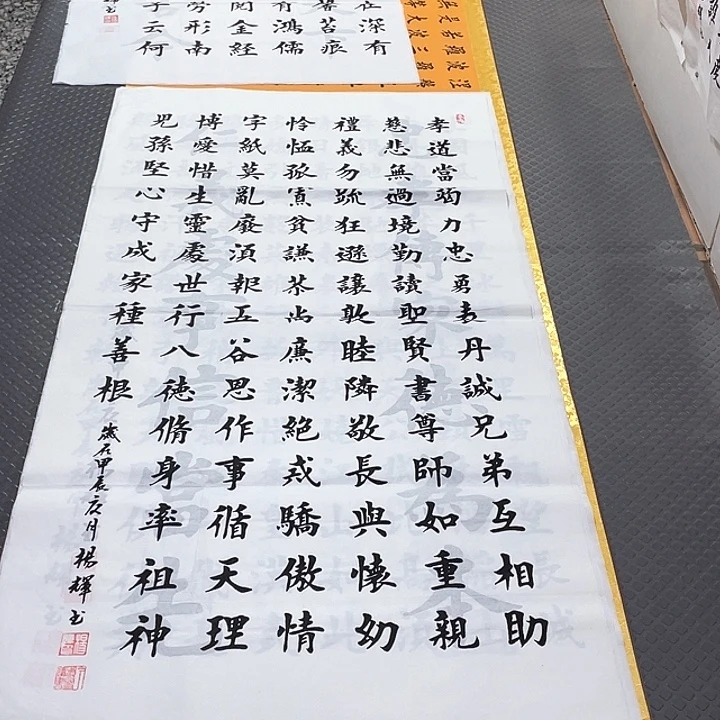 深有
苔痕
有鴻儒
閱金經
勞形南
子云何
孝道當竭力忠勇表丹誠兄弟互相助
慈悲無過境勤讀聖賢書尊師如重親
禮義勿疏狂遜讓敦睦隣敬長與懷幼
怜恤孤寡貧謙恭尚廉潔絕戒驕傲情
字紙莫亂廢須報五谷恩作事循天理
博愛惜生靈處世行八德脩身率祖神
兒孫堅心守成家種善根
歲在甲辰 月楊輝书